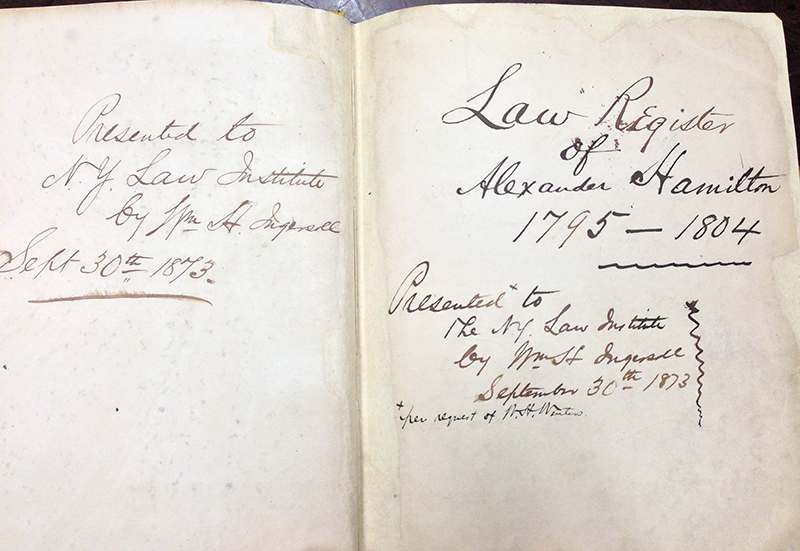 Presented to
N. Y. Law Institute
by Wm H. Ingersoll
Sept 30th 1873.
Law Register
of
Alexander Hamilton
1795 — 1804
Presented + to
The N.Y. Law Institute
by Wm H Ingersoll
September 30th 1873
+ per request of W. H. Winters.